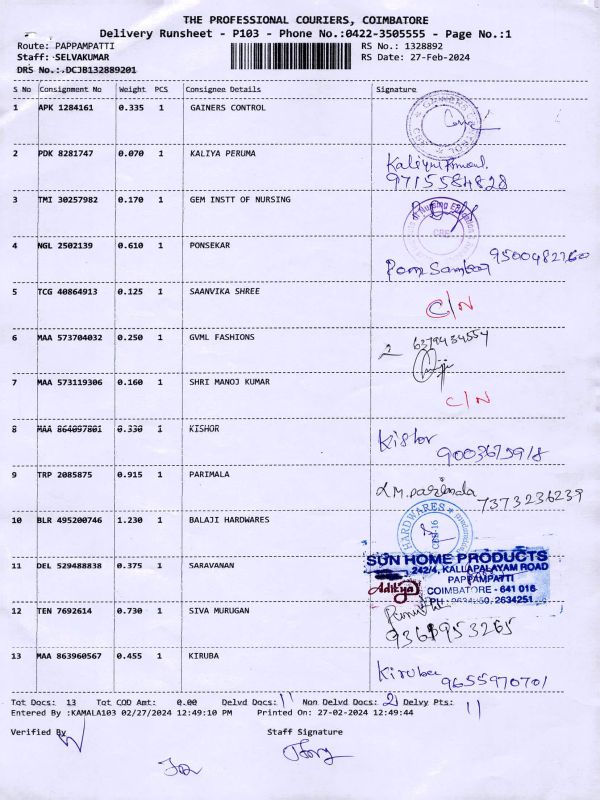 THE PROFESSIONAL COURIERS, COIMBATORE
Delivery Runsheet - P103 - Phone No.:0422-3505555 - Page No.:1
Route: PAPPAMPATTI RS No.: 1328892
Staff: SELVAKUMAR RS Date: 27-Feb-2024
DRS No.:.DCJB132889201
S No Consignment No Weight PCS Consignee Details Signature
1 APK 1284161 0.335 1 GAINERS CONTROL
2 PDK 8281747 0.070 1 KALIYA PERUMA
9715584828
3 TMI 30257982 0.170 1 GEM INSTT OF NURSING
4 NGL 2502139 0.610 1 PONSEKAR 9500482760
5 TCG 40864913 0.125 1 SAANVIKA SHREE C/N
6 MAA 573704032 0.250 1 GVML FASHIONS 6379434554
7 MAA 573119306 0.160 1 SHRI MANOJ KUMAR C/N
8 MAA 864097801 0.330 1 KISHOR Kishor
9003675918
9 TRP 2085875 0.915 1 PARIMALA
7373236239
10 BLR 495200746 1.230 1 BALAJI HARDWARES HARDWARES
11 DEL 529488838 0.375 1 SARAVANAN
SUN HOME PRODUCTS
242/4, KALLAPALAYAM ROAD
PAPPAMPATTI
Aditya COIMBATORE - 641 016
12 TEN 7692614 0.730 1 SIVA MURUGAN
9361953265
13 MAA 863960567 0.455 1 KIRUBA Kiruba 9655970701
Tot Docs: 13 Tot COD Amt: 0.00 Delvd Docs: 11 Non Delvd Docs: 2 Delvy Pts: 11
Entered By :KAMALA103 02/27/2024 12:49:10 PM Printed On: 27-02-2024 12:49:44
Verified By Staff Signature